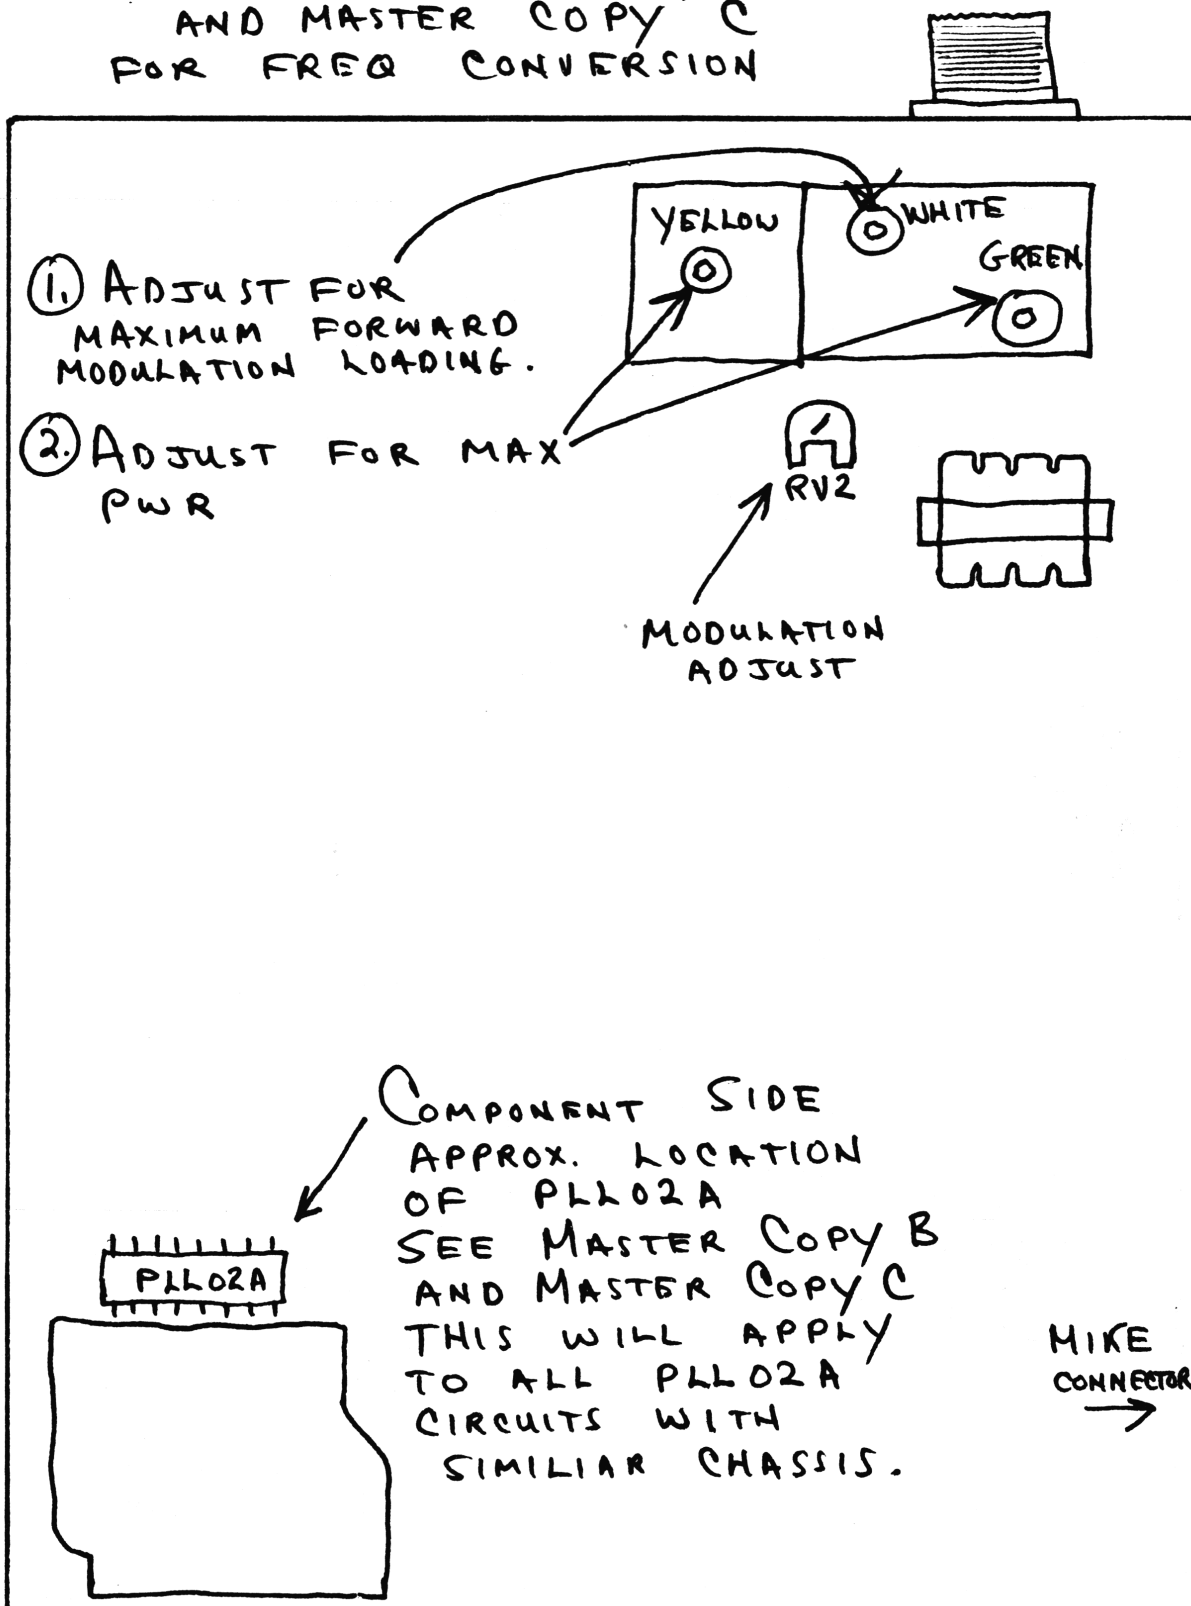 AND MASTER COPY C
FOR FREQ CONVERSION
YELLOW
WHITE
GREEN
1. ADJUST FOR
MAXIMUM FORWARD
MODULATION LOADING.
2. ADJUST FOR MAX
PWR
RV2
MODULATION
ADJUST
COMPONENT SIDE
APPROX. LOCATION
OF PLL02A
SEE MASTER COPY B
AND MASTER COPY C
THIS WILL APPLY
TO ALL PLL02A
CIRCUITS WITH
SIMILIAR CHASSIS.
PLL02A
MIKE
CONNECTOR